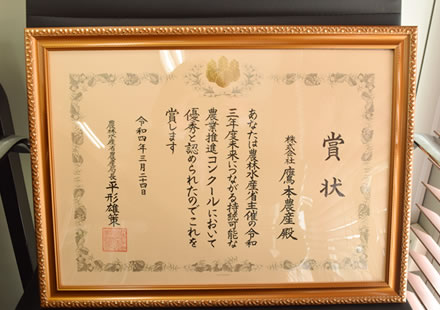 賞状
株式会社 鷹本農産 殿
あなたは農林水産省主催の令和
三年度未来につながる持続可能な
農業推進コンクールにおいて
優秀と認められたのでこれを
賞します
令和四年三月二四日
農林水産省農産局長 平形雄策